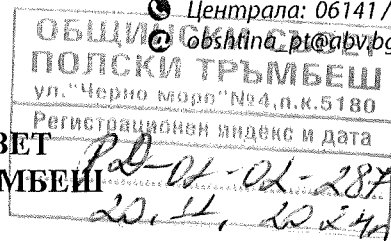 Централа: 06141/
obshtina_pt@abv.bg
ОБЩИНСКИ СЪВЕТ
ПОЛСКИ ТРЪМБЕШ
ул."Черно море"№4,п.к.5180
Регистрационен индекс и дата
ВЕТ
МБЕШ
РД-01-02-287
20.11.2024г